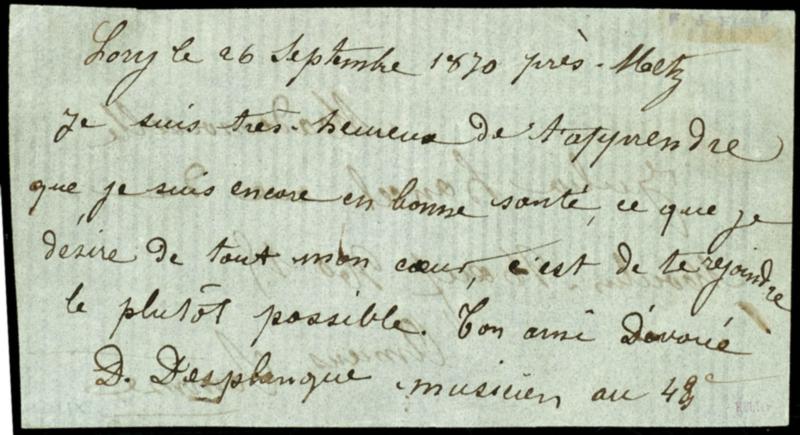 Lory le 26 Septembre 1870 près - Metz
je suis très-heureux de t'apprendre
que je suis encore en bonne santé, ce que je
désire de tout mon cœur, c'est de te rejoindre
le plutôt possible. Ton ami Dévoué
D. Desplanque musicien au 43e